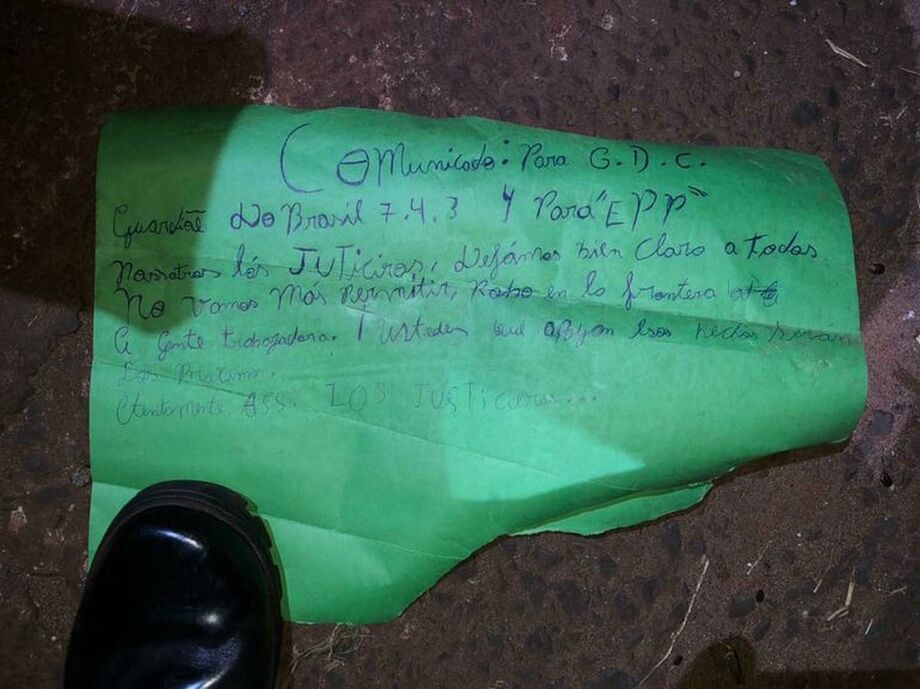 Comunicado: Para G.D.C.
Guardiõe do Brasil 7.4.3 y Para "EPP"
Nossotros lós JUTiciros, Dejámos bien Claro a todos
No vamos más Permitir, Robo en la frontera
a gente trabajadora. Y ustedes que apoyan esos hechos serán
Los Próximo.
Atentamente, ASS: LOS JUSTicieros...